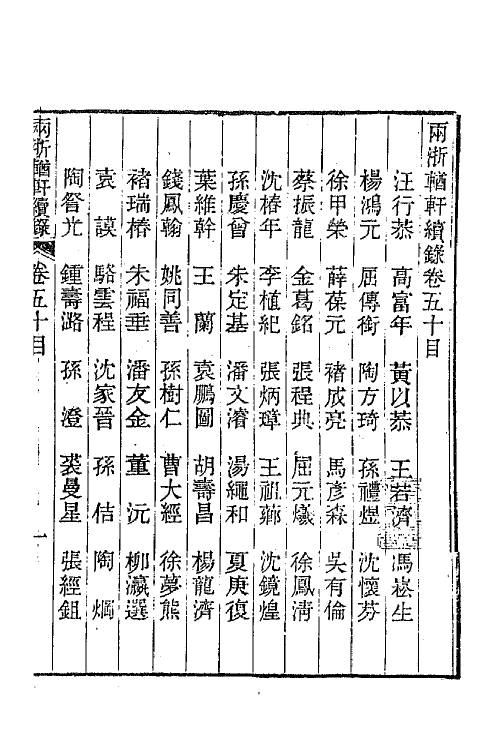 兩浙輶軒續錄卷五十目
汪行恭 高富年 黃以恭 王若濟 馮崧生
楊鴻元 屈傳銜 陶方琦 孫禮煜 沈懷芬
徐甲榮 薛葆元 褚成亮 馬彥森 吳有倫
蔡振龍 金葛銘 張程典 屈元爔 徐鳳淸
沈椿年 李植紀 張炳璋 王祖 沈鏡煌
孫慶曾 朱定基 潘文濬 湯繩和 夏庚復
葉維幹 王蘭 袁鵬圖 胡壽昌 楊龍濟
錢鳳翰 姚同善 孫樹仁 曹大經 徐夢熊
褚瑞椿 朱福垂 潘友金 董沅 柳瀛選
袁謨 駱雲程 沈家晉 孫佶 陶烱
陶咎光 鍾壽潞 孫澄 裘曼星 張經鉏
兩浙輶軒續錄 卷五十目 一